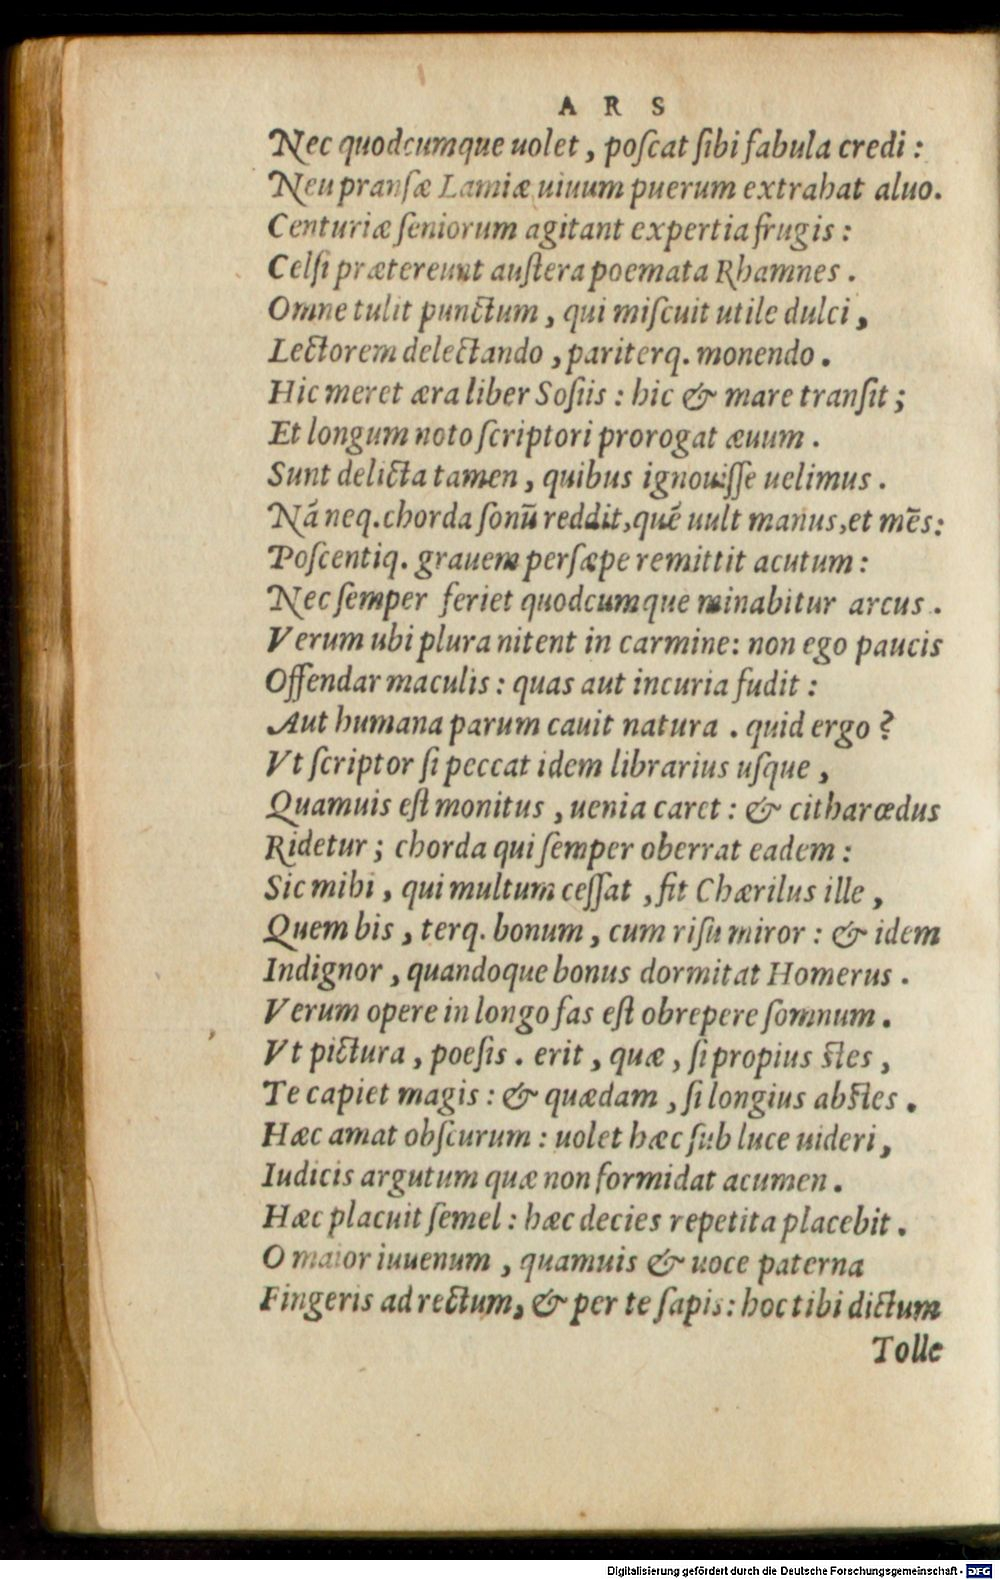 ARS
Nec quodcumque uolet, poſcat ſibi fabula credi:
Neu pranſæ Lamiæ uiuum puerum extrahat aluo.
Centuriæ ſeniorum agitant expertia frugis:
Celſi prætereunt auſtera poemata Rhamnes.
Omne tulit punctum, qui miſcuit utile dulci,
Lectorem delectando, pariterq. monendo.
Hic meret æra liber Soſiis: hic & mare tranſit;
Et longum noto ſcriptori prorogat æuum.
Sunt delicta tamen, quibus ignouiſſe uelimus.
Nā neq. chorda ſonū reddit, quē uult manus, et mēs:
Poſcentiq. grauem perſæpe remittit acutum:
Nec ſemper feriet quodcumque minabitur arcus.
Verum ubi plura nitent in carmine: non ego paucis
Offendar maculis: quas aut incuria fudit:
Aut humana parum cauit natura. quid ergo?
Vt ſcriptor ſi peccat idem librarius uſque,
Quamuis eſt monitus, uenia caret: & citharœdus
Ridetur; chorda qui ſemper oberrat eadem:
Sic mihi, qui multum ceſſat, fit Chærilus ille,
Quem bis, terq. bonum, cum riſu miror: & idem
Indignor, quandoque bonus dormitat Homerus.
Verum opere in longo fas eſt obrepere ſomnum.
Vt pictura, poeſis. erit, quæ, ſi propius ſtes,
Te capiet magis: & quædam, ſi longius abſtes.
Hæc amat obſcurum: uolet hæc ſub luce uideri,
Iudicis argutum quæ non formidat acumen.
Hæc placuit ſemel: hæc decies repetita placebit.
O maior iuuenum, quamuis & uoce paterna
Fingeris ad rectum, & per te ſapis: hoc tibi dictum
Tolle
Digitalisierung gefördert durch die Deutsche Forschungsgemeinschaft - DFG